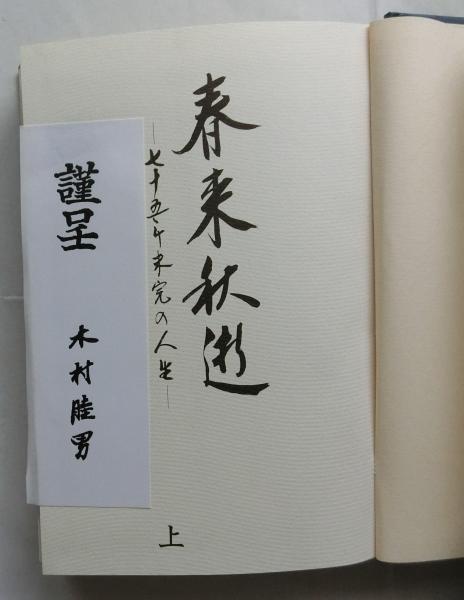 春来秋逝
―七十五年未完の人生―
上
謹呈
木村睦男